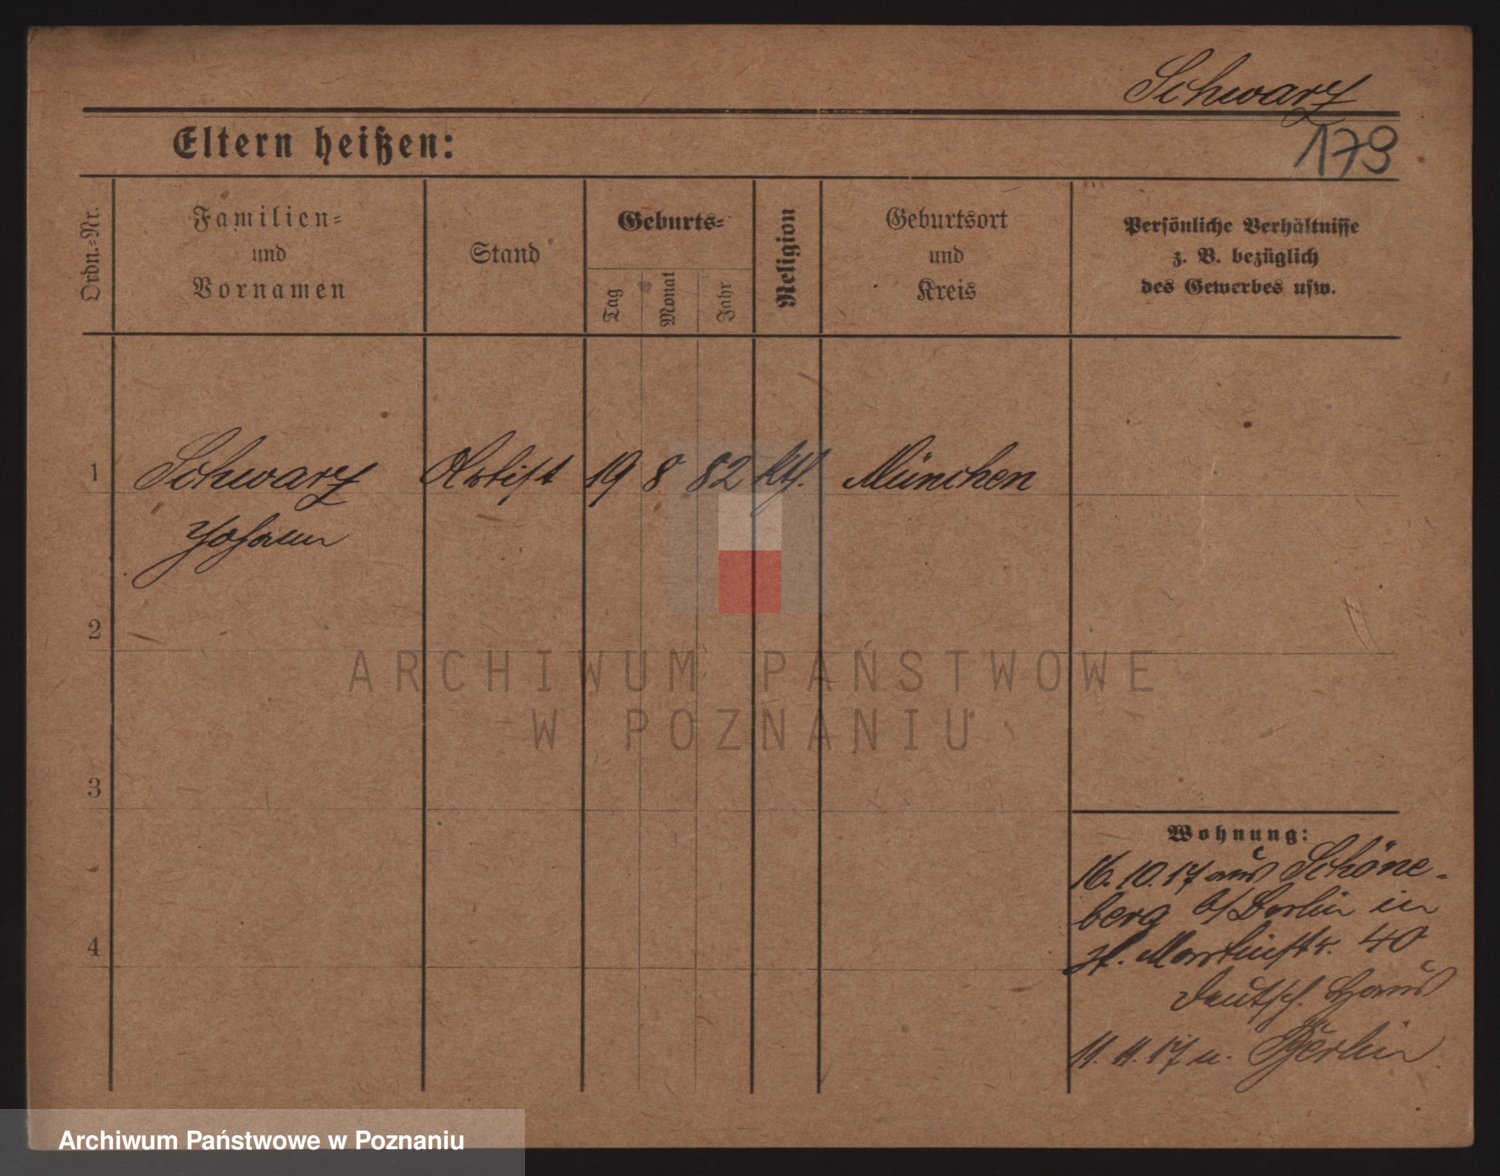 Schwarz
179
Eltern heißen:
Ordn.=Nr.
Familien=
und
Vornamen
Stand
Geburts=
Tag
Monat
Jahr
Religion
Geburtsort
und
Kreis
Persönliche Verhältnisse
z. B. bezüglich
des Gewerbes usw.
1 Schwarz Artist 19 8 82 kth. München
Johann
2
3
4
Wohnung:
16.10.17 aus Schöne-
berg b/Berlin in
St. Martinstr. 40
Deutsch. Haus
11.11.17 n. Berlin
ARCHIWUM PAŃSTWOWE
W POZNANIU
Archiwum Państwowe w Poznaniu